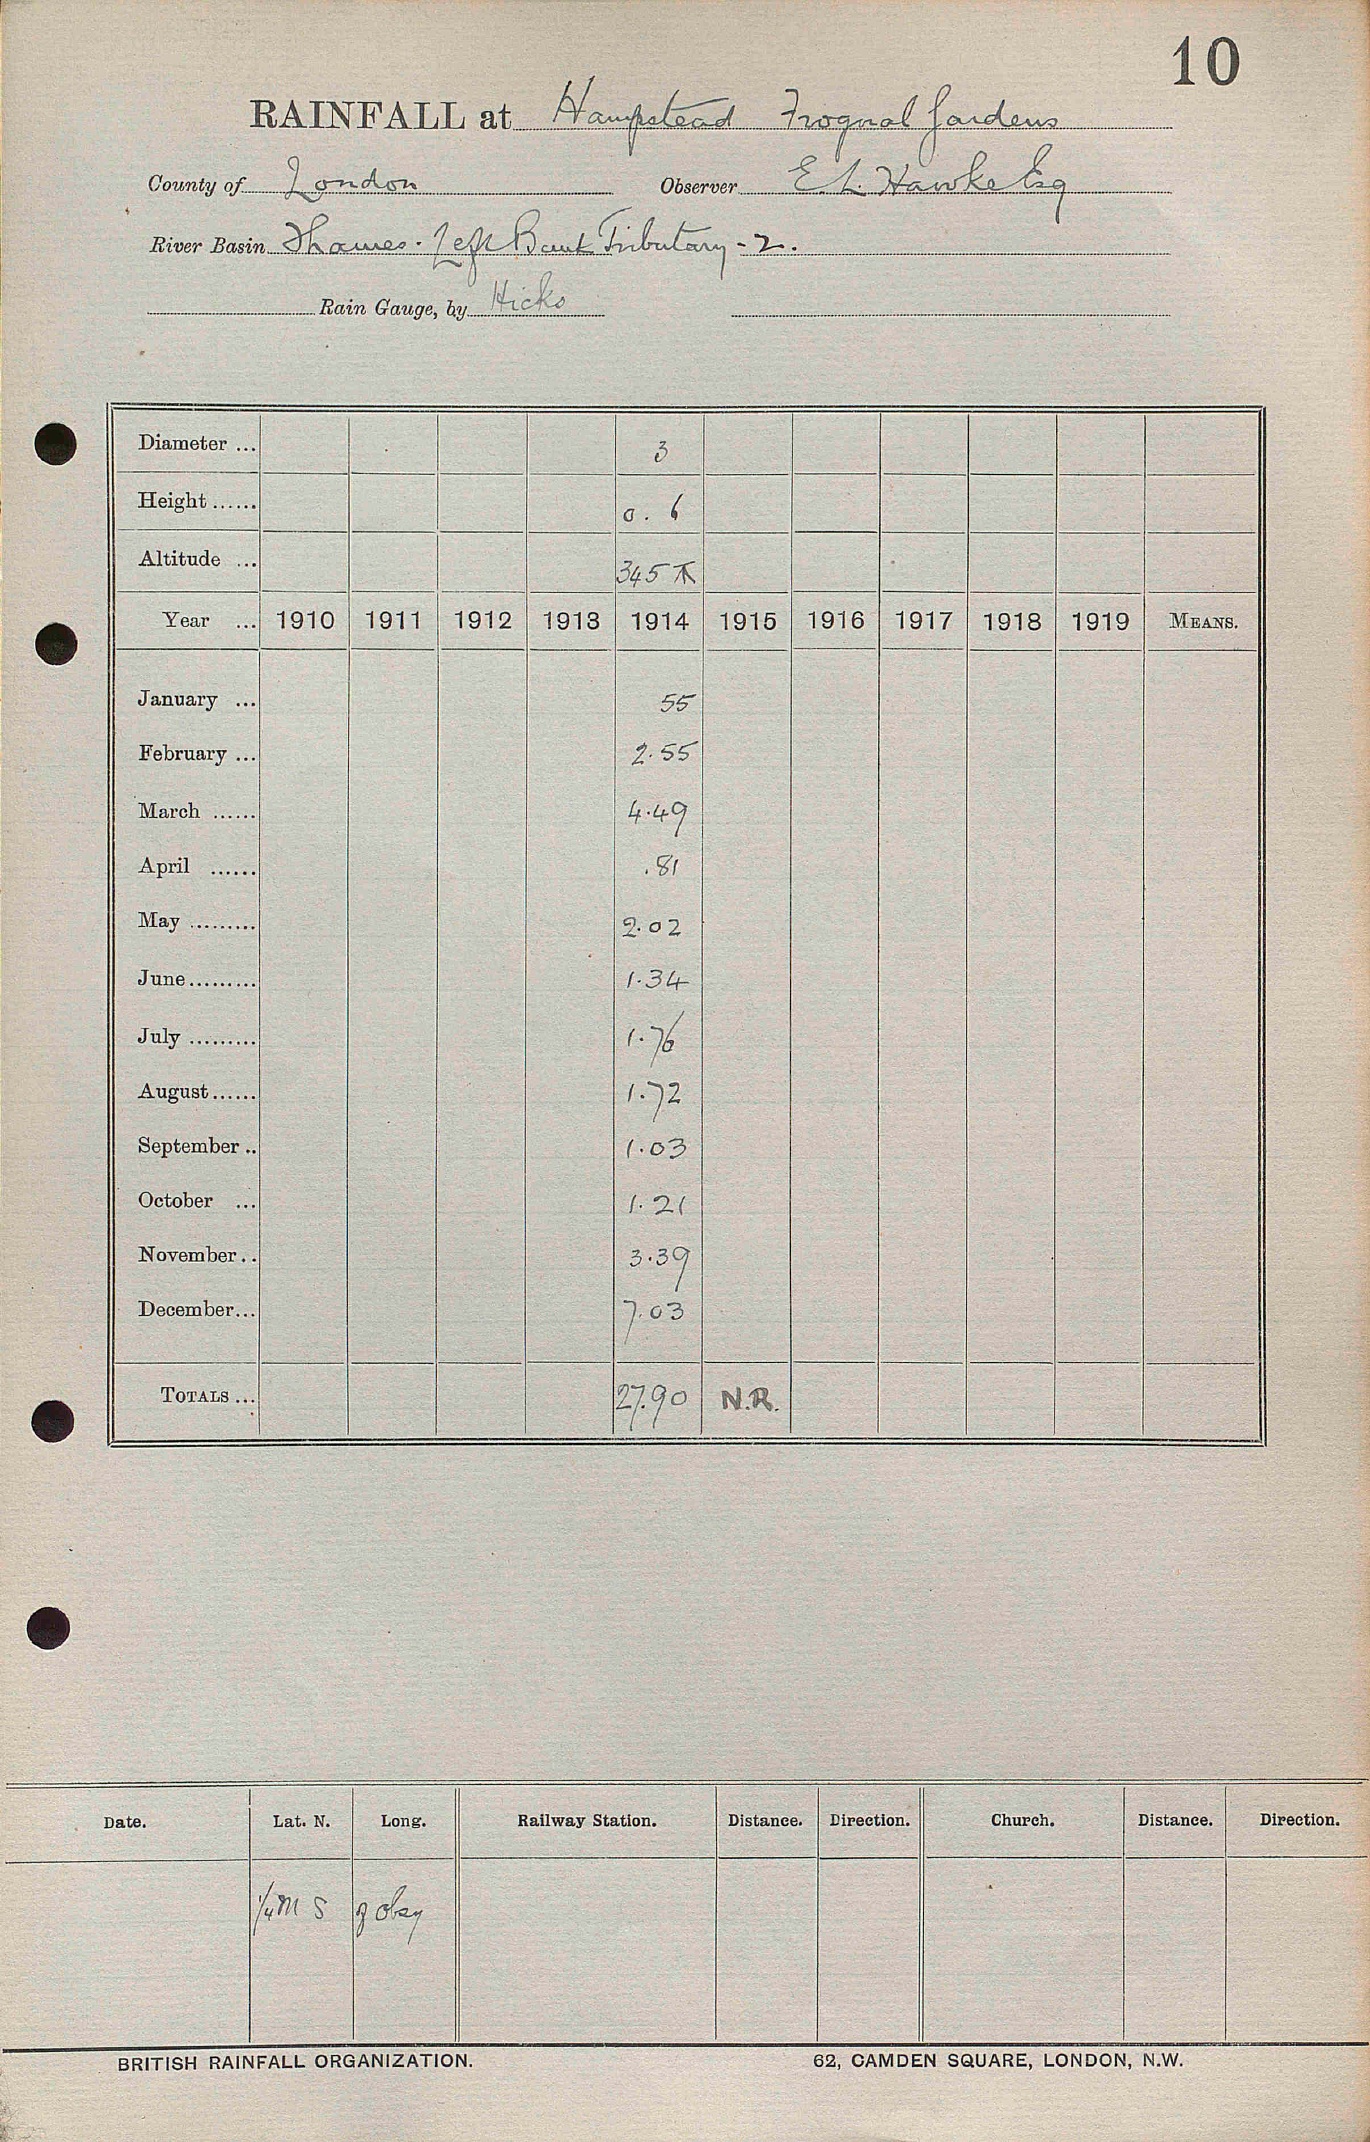 10
RAINFALL at Hampstead Frognal Gardens
County of London Observer E. L. Hawke Esq
River Basin Thames - Left Bank Tributary - 2.
Rain Gauge, by Hicks
Diameter ... 3
Height ...... 0. 6
Altitude ... 345
Year ... 1910 1911 1912 1913 1914 1915 1916 1917 1918 1919 MEANS.
January ... 55
February ... 2.55
March ...... 4.49
April ...... .81
May ......... 2.02
June......... 1.34
July ......... 1.76
August...... 1.72
September .. 1.03
October ... 1.21
November.. 3.39
December... 7.03
TOTALS ... 27.90 N.R.
Date. Lat. N. Long. Railway Station. Distance. Direction. Church. Distance. Direction.
1/4 M S of obsy
BRITISH RAINFALL ORGANIZATION. 62, CAMDEN SQUARE, LONDON, N.W.